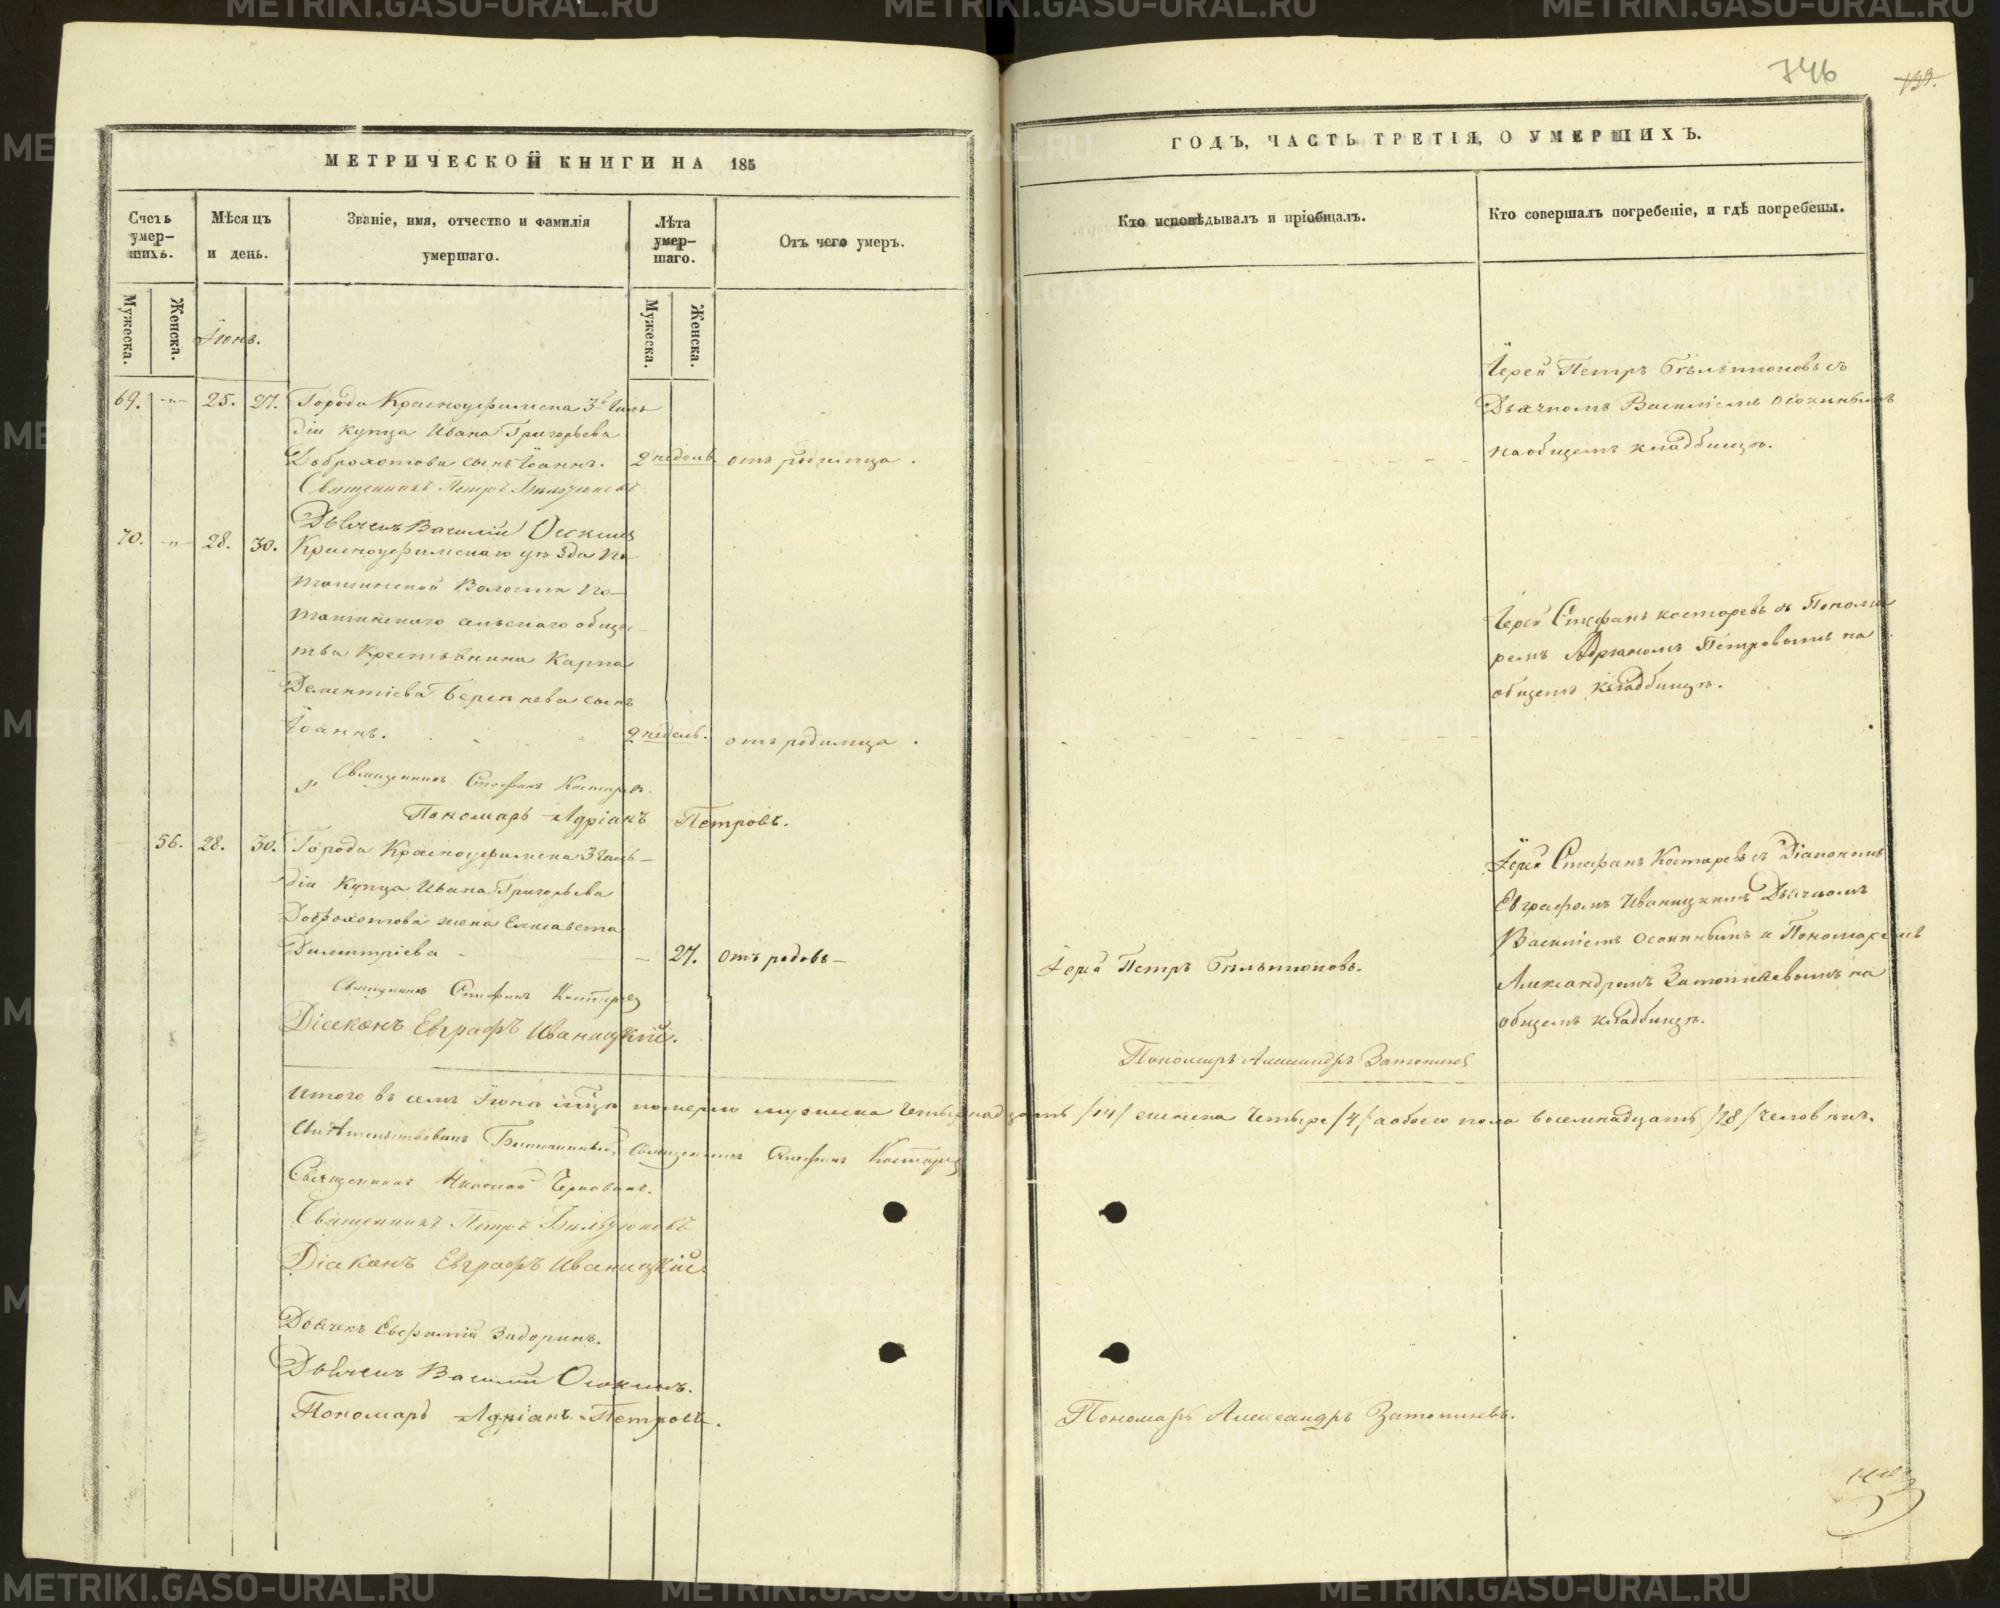 746
199.
МЕТРИЧЕСКОЙ КНИГИ НА 185
ГОДЪ, ЧАСТЬ ТРЕТІЯ, О УМЕРШИХЪ.
Счетъ умер-шихъ.
Мѣсяцъ и день.
Званіе, имя, отчество и фамилія умершаго.
Лѣта умер-шаго.
Отъ чего умеръ.
Кто исповѣдывалъ и пріобщалъ.
Кто совершалъ погребеніе, и гдѣ погребены.
Мужеска.
Женска.
Мужеска.
Женска.
Іюнь.
69. -"- 25. 27. Города Красноуфимска 3й Гиль
діи купца Ивана Григорьева
Доброхотова сынъ Іоаннъ. 2 недѣль отъ родимца.
Священникъ Петръ
Дьячекъ Василій Осокинъ
Іерей Петръ съ
Дьячкомъ Василіемъ Осокинымъ
на общемъ кладбищѣ.
70. -"- 28. 30. Красноуфимскаго уѣзда По
ташинской Волости По-
ташинскаго сельскаго обще-
тва Крестьянина Карпа
Дементіева сынъ
Іоаннъ. 2 недѣль. отъ родимца.
Священникъ Стефанъ Костаревъ.
Пономарь Адріанъ Петровъ.
Іерей Стефанъ Костаревъ съ Понома
ремъ Адріаномъ Петровымъ на
общемъ кладбищѣ.
56. 28. 30. Города Красноуфимска 3 Гиль-
діи Купца Ивана Григорьева
Доброхотова жена Елисавета
Димитріева - - 27. Отъ родовъ-
Священникъ Стефанъ Костаревъ
Діаконъ Евграфъ Иваницкій.
Іерей Петръ
Іерей Стефанъ Костаревъ съ Діакономъ
Евграфомъ Иваницкимъ Дьячкомъ
Василіемъ Осокинымъ и Пономаремъ
Александромъ на
общемъ кладбищѣ.
Пономарь Александръ
Итого въ семъ Іюнѣ мѣсяцѣ померло мужеска четырнадцать /14/ женска четыре /4/, а обоего пола восемнадцать /18/ человѣкъ.
Свидѣтельствовалъ Священникъ Стефанъ Костаревъ
Священникъ Николай
Священникъ Петръ
Діаконъ Евграфъ Иваницкій.
Дьячекъ Евфимій Задоринъ.
Дьячекъ Василій Осокинъ.
Пономарь Адріанъ Петровъ.
Пономарь Александръ
METRIKI.GASO-URAL.RU